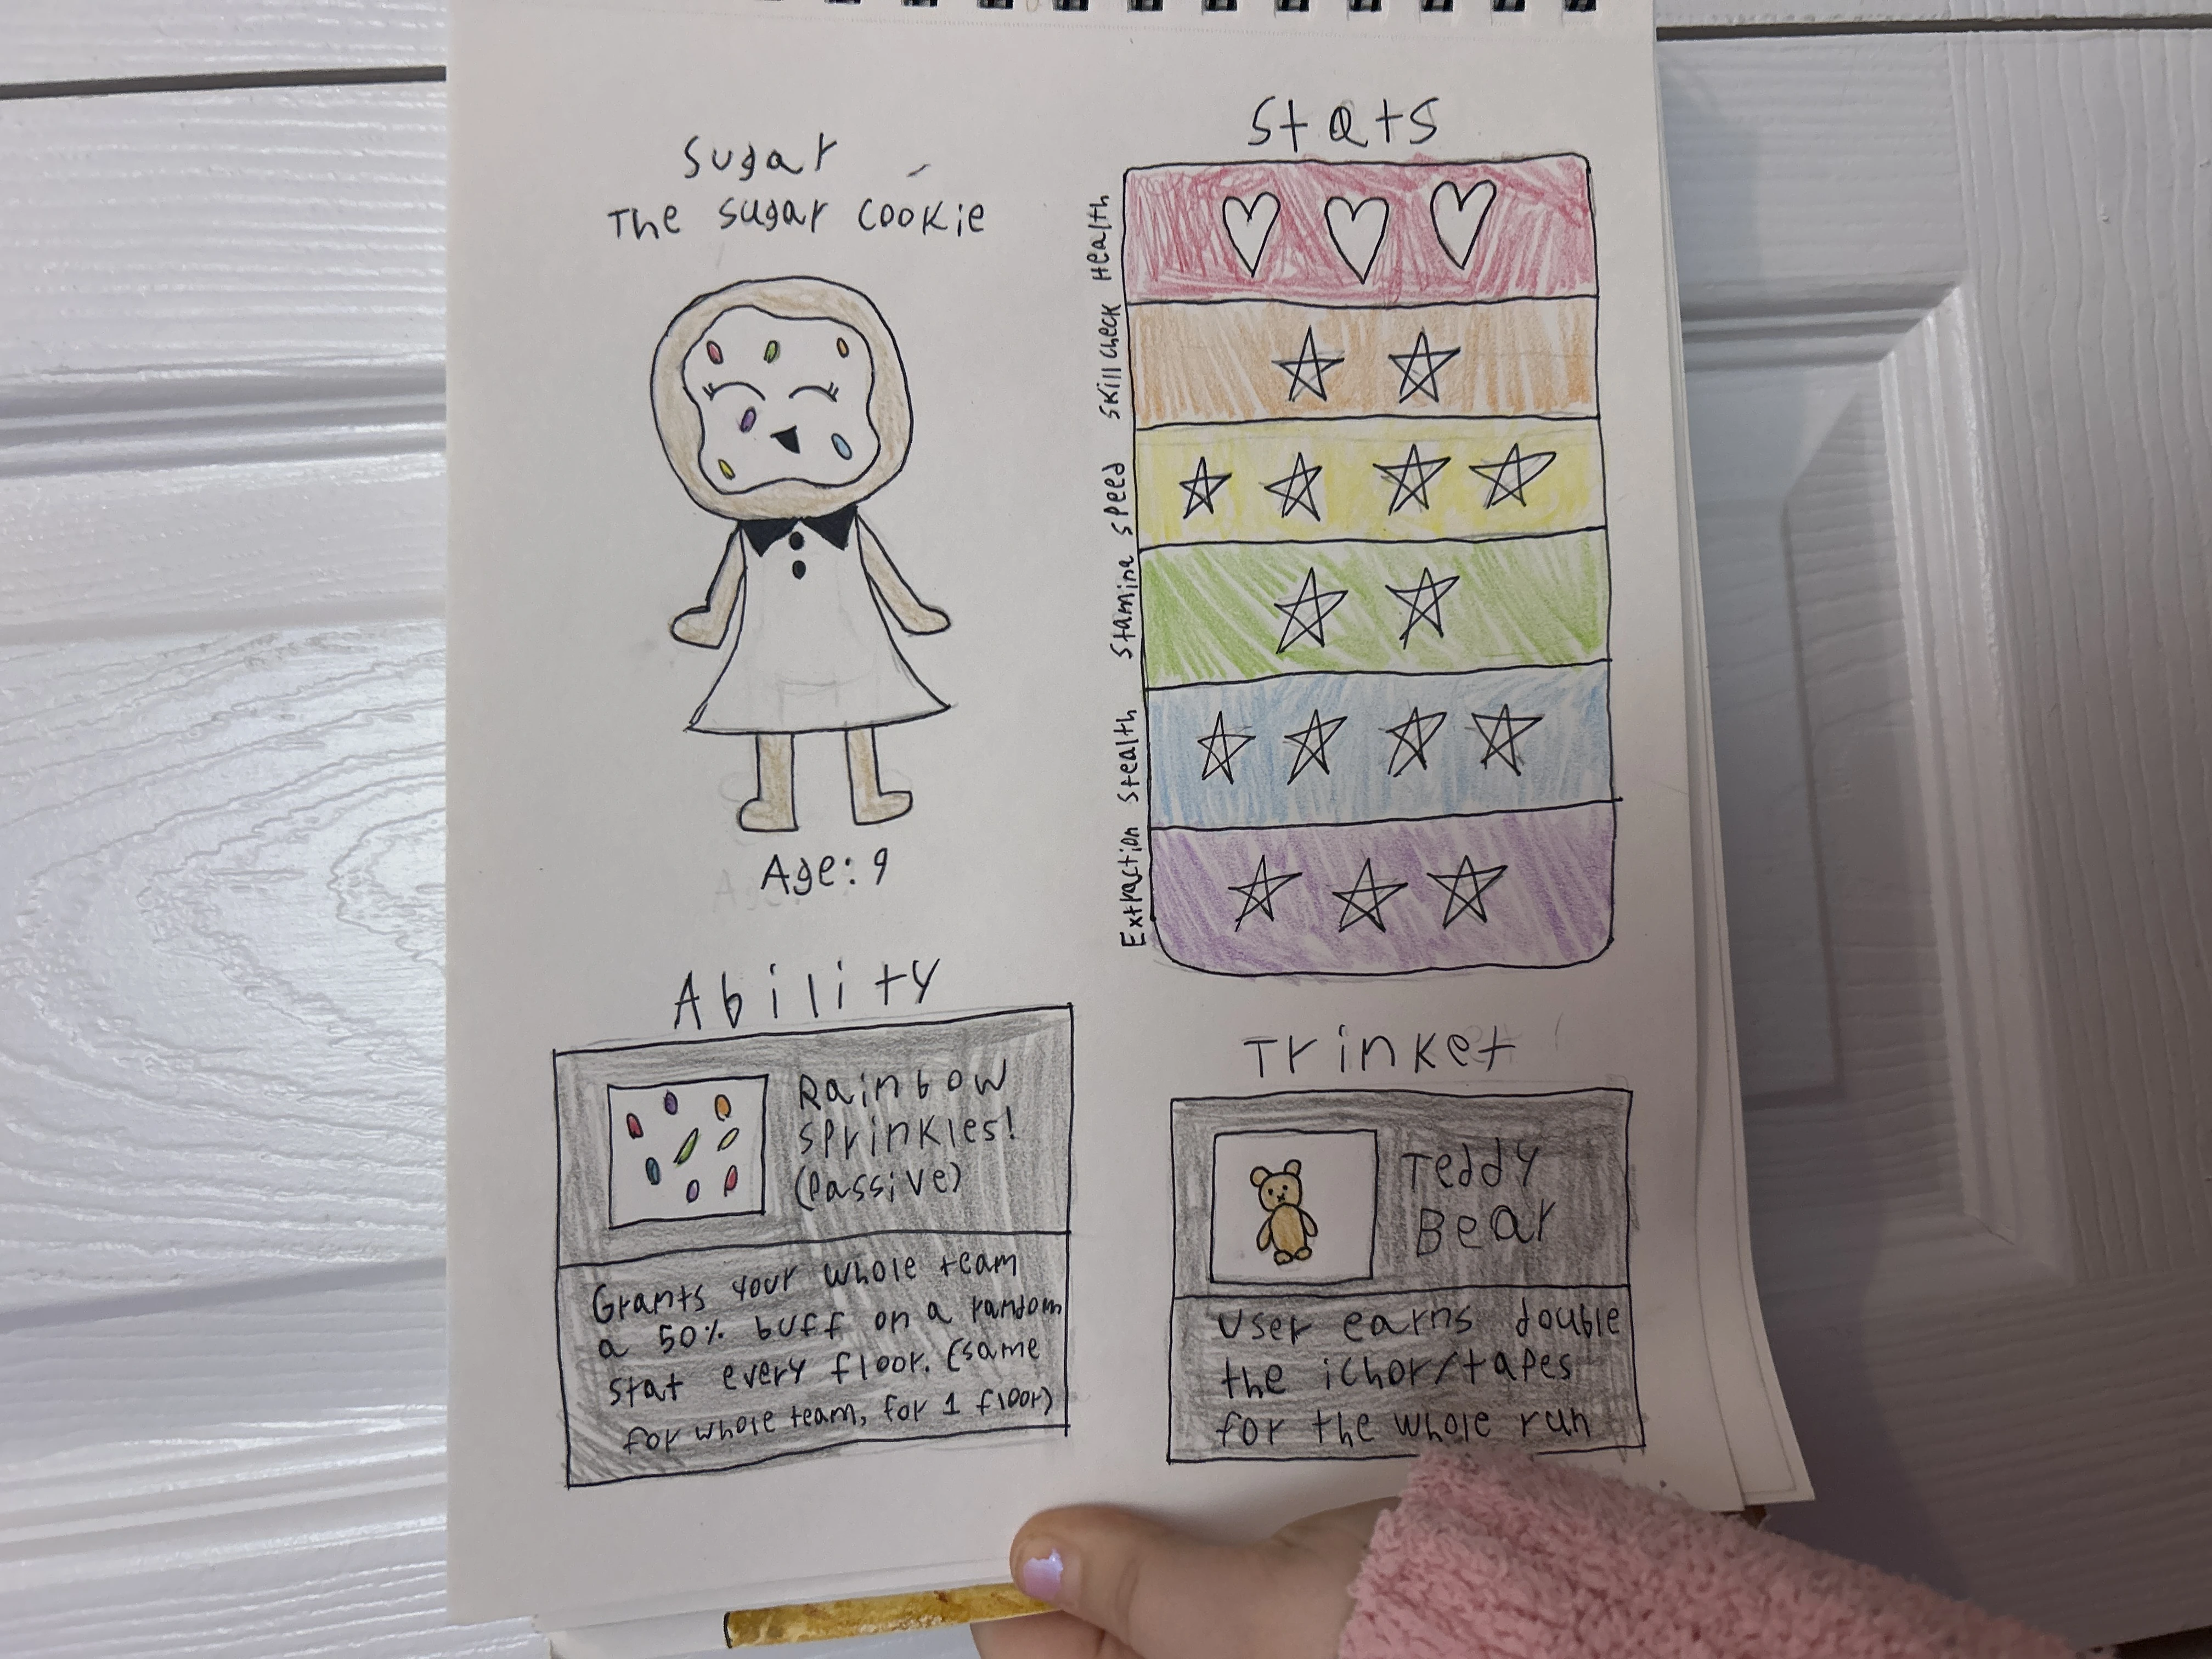 Sugar
The sugar cookie
Age: 9
Stats
Health
Skill check
Speed
Stamina
Stealth
Extraction
Ability
Rainbow
sprinkles!
(Passive)
Grants your whole team
a 50% buff on a random
stat every floor. (same
for whole team, for 1 floor)
Trinket
Teddy
Bear
User earns double
the ichor/tapes
for the whole run